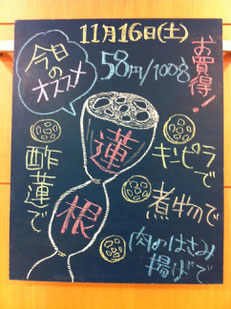 11月16日(土)
今日
の
オススメ
58円/100g
お買得!
蓮
根
キンピラ
で
酢蓮で
煮物で
肉のはさみ
揚げで